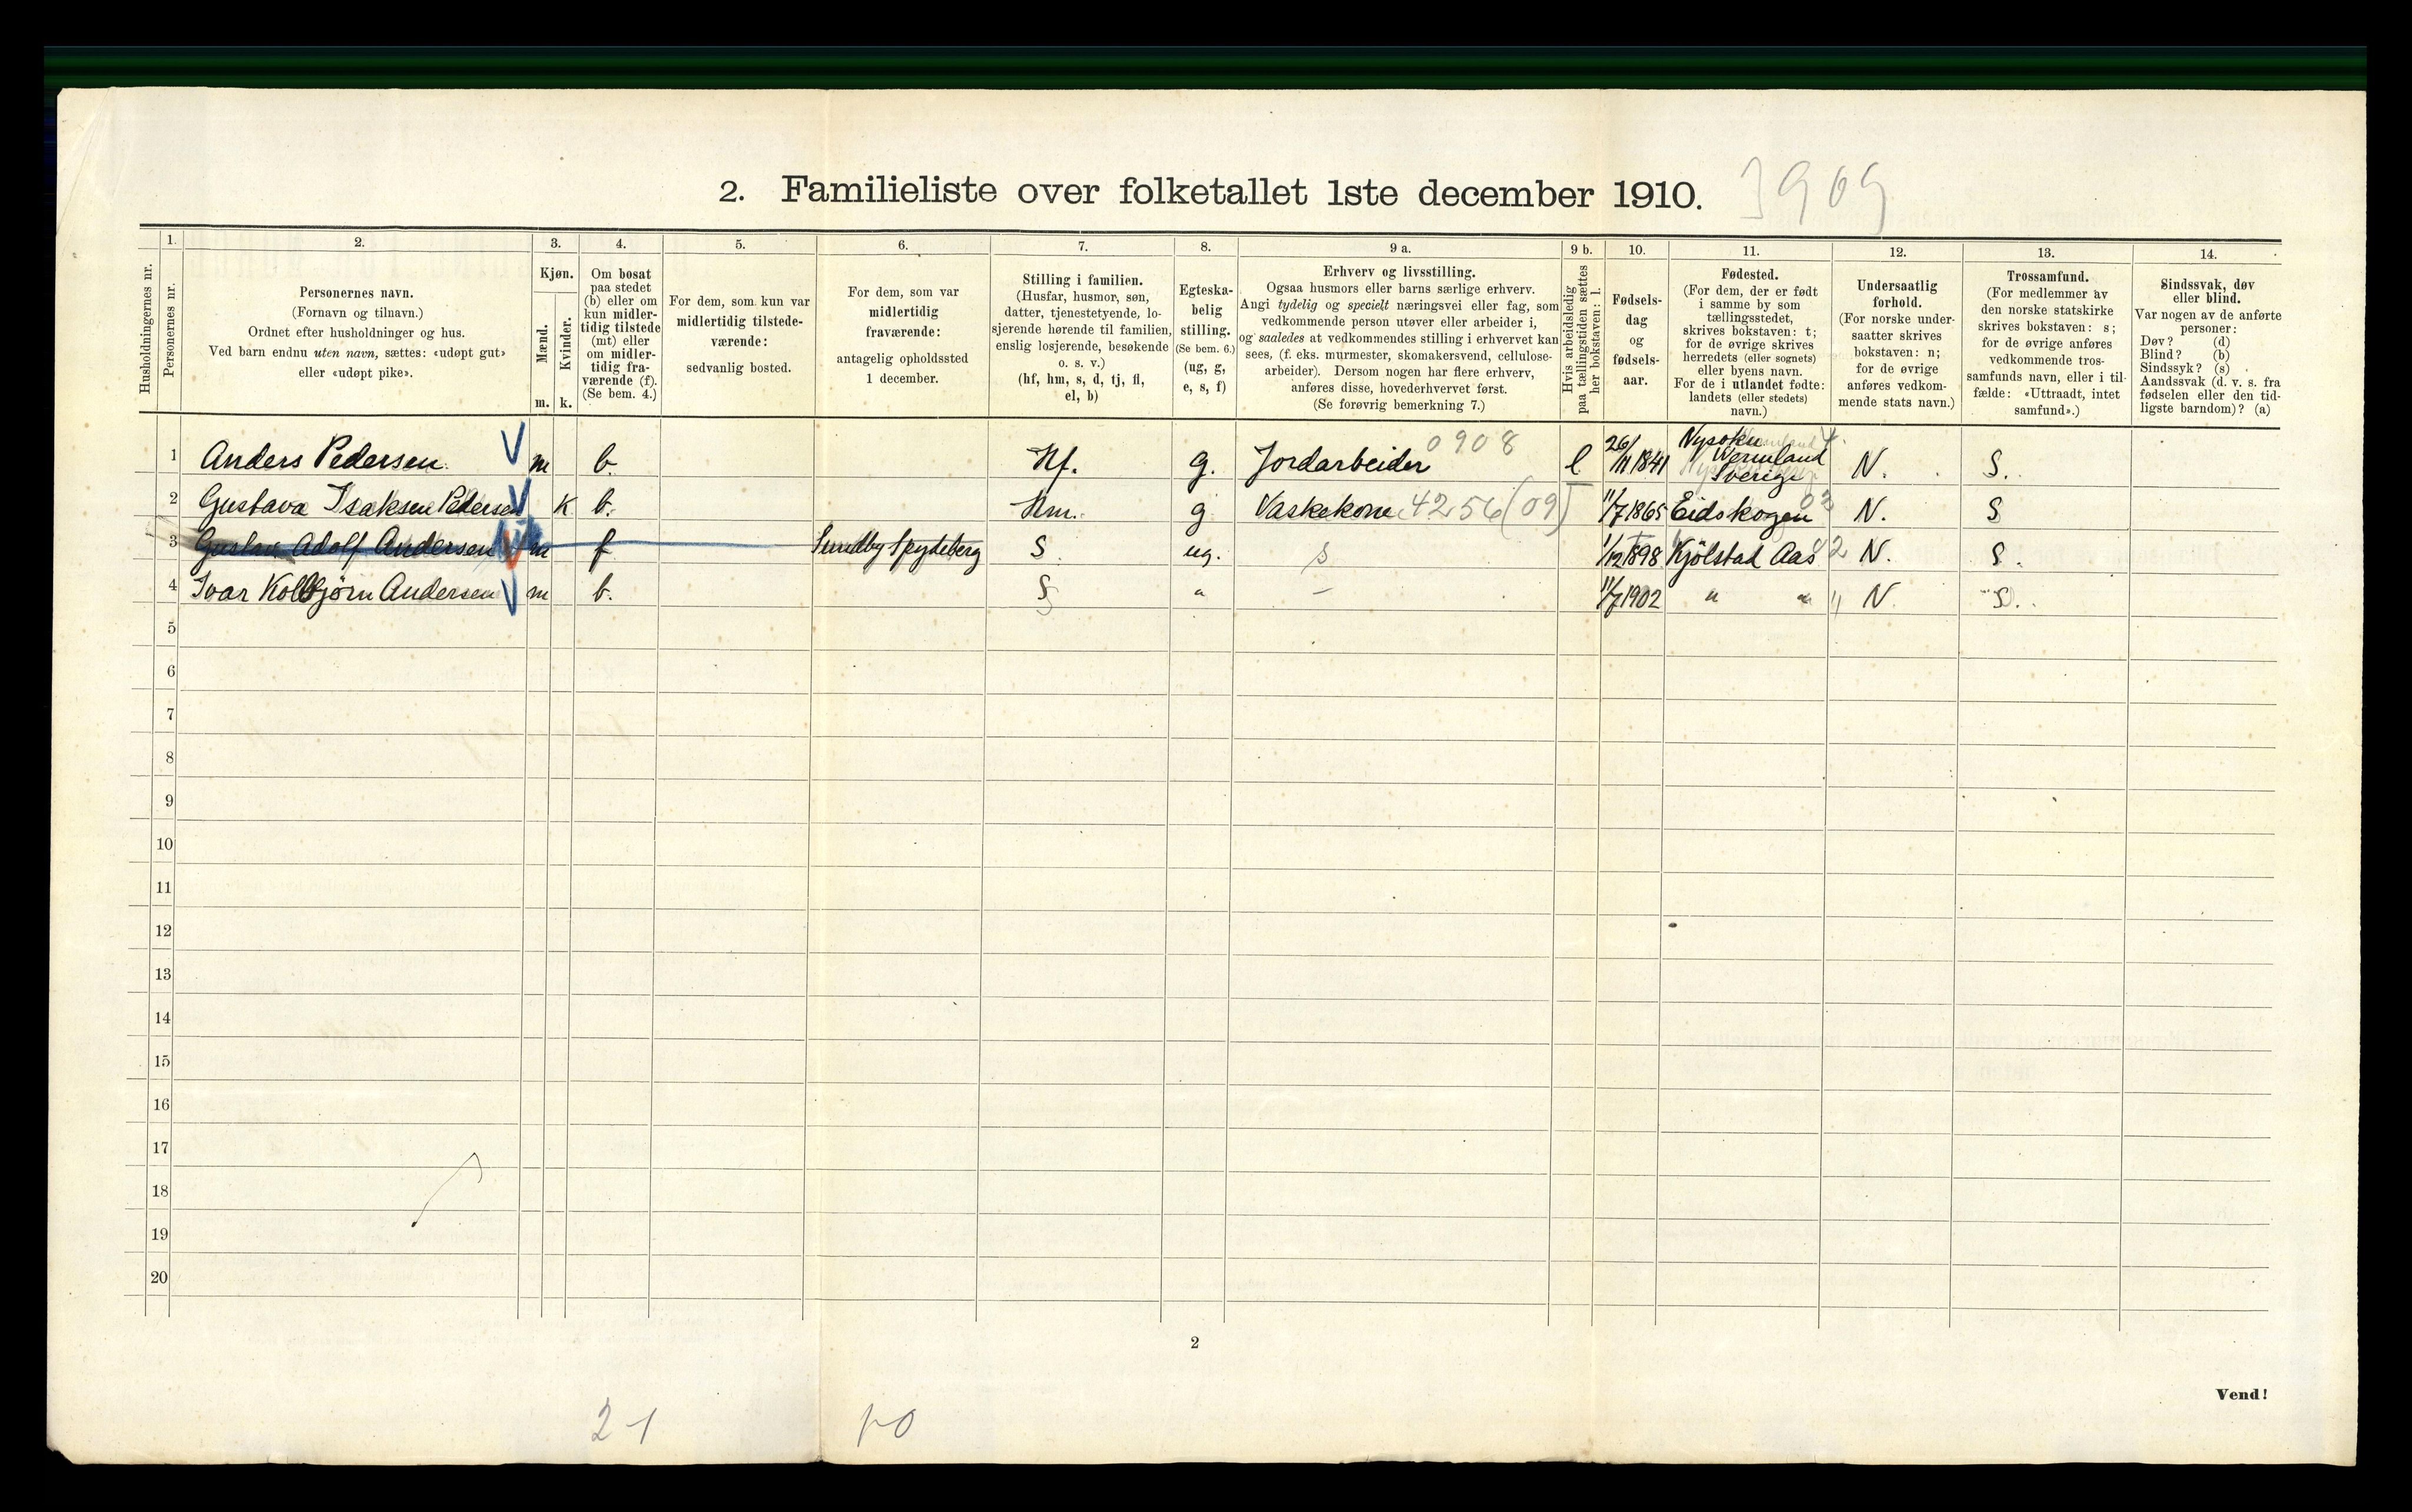 2. Familieliste over folketallet 1ste december 1910. 3909
Husholdningernes nr.
1. Personernes nr.
2.
Personernes navn.
(Fornavn og tilnavn.)
Ordnet efter husholdninger og hus.
Ved barn endnu uten navn, sættes: «udøpt gut»
eller «udøpt pike».
3.
Kjøn.
Mænd. Kvinder.
m. k.
4.
Om bosat
paa stedet
(b) eller om
kun midler-
tidig tilstede
(mt) eller
om midler-
tidig fra-
værende (f).
(Se bem. 4.)
5.
For dem, som kun var
midlertidig tilstede-
værende:
sedvanlig bosted.
6.
For dem, som var
midlertidig
fraværende:
antagelig opholdssted
1 december.
7.
Stilling i familien.
(Husfar, husmor, søn,
datter, tjenestetyende, lo-
sjerende hørende til familien,
enslig losjerende, besøkende
o. s. v.)
(hf, hm, s, d, tj, fl,
el, b)
8.
Egteska-
belig
stilling.
(Se bem. 6.)
(ug, g,
e, s, f)
9 a.
Erhverv og livsstilling.
Ogsaa husmors eller barns særlige erhverv.
Angi tydelig og specielt næringsvei eller fag, som
vedkommende person utøver eller arbeider i,
og saaledes at vedkommendes stilling i erhvervet kan
sees, (f. eks. murmester, skomakersvend, cellulose-
arbeider). Dersom nogen har flere erhverv,
anføres disse, hovederhvervet først.
(Se forøvrig bemerkning 7.)
9 b.
Hvis arbeidsledig
paa tællingstiden sættes
her bokstaven: l.
10.
Fødsels-
dag
og
fødsels-
aar.
11.
Fødested.
(For dem, der er født
i samme by som
tællingsstedet,
skrives bokstaven: t;
for de øvrige skrives
herredets (eller sognets)
eller byens navn.
For de i utlandet fødte:
landets (eller stedets)
navn.)
12.
Undersaatlig
forhold.
(For norske under-
saatter skrives
bokstaven: n;
for de øvrige
anføres vedkom-
mende stats navn.)
13.
Trossamfund.
(For medlemmer av
den norske statskirke
skrives bokstaven: s;
for de øvrige anføres
vedkommende tros-
samfunds navn, eller i til-
fælde: «Uttraadt, intet
samfund».)
14.
Sindssvak, døv
eller blind.
Var nogen av de anførte
personer:
Døv? (d)
Blind? (b)
Sindssyk? (s)
Aandssvak (d. v. s. fra
fødselen eller den tid-
ligste barndom)? (a)
1 Anders Pedersen. V m b Hf. g. Jordarbeider 0908 l 26/11 1841 Nysokn Wermland Sverige N. S.
2 Gustava Isaksen Pedersen V k b. Hm. g Vaskekone 4256 (09) 11/7 1865 Eidskogen 03 N. S
3 Gustav Adolf Andersen V m f Sundby Spydeberg S ug. s 1/12 1898 Kjölstad Aas 02 N. S.
4 Ivar Kolbjörn Andersen V m b. S " – 11/7 1902 " " " N. S.
5
6
7
8
9
10
11
12
13
14
15
16
17
18
19
20
2
Vend!
2-1 1-0